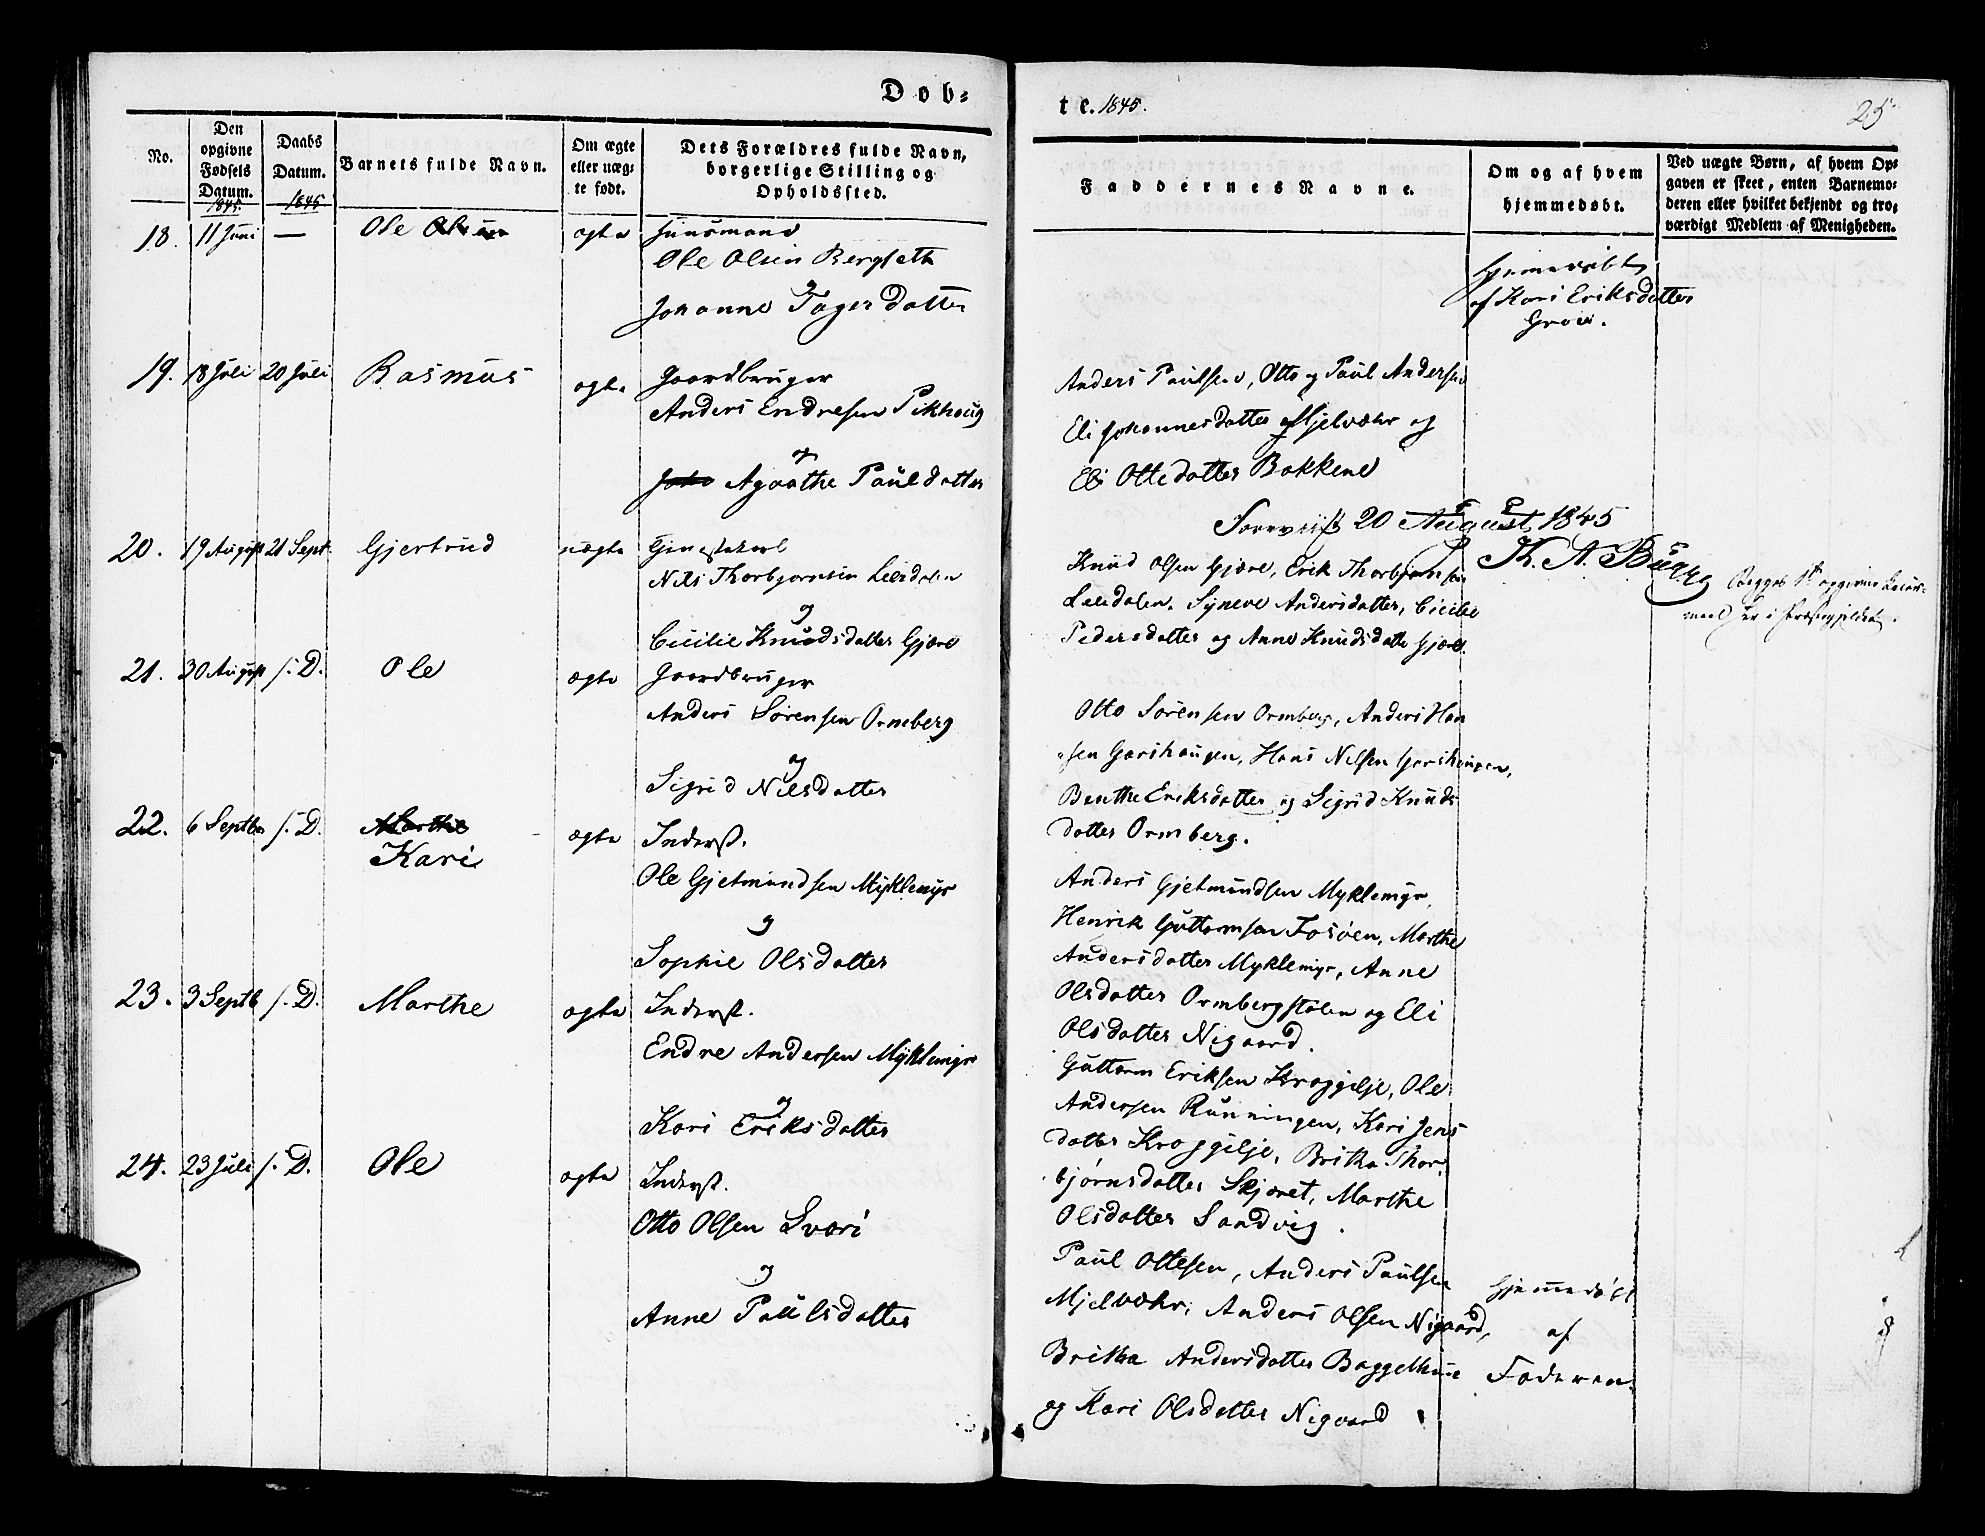 Dob-
te. 1845.
25
No.
Den opgivne Fødsels Datum.
1845.
Daabs Datum.
1845
Barnets fulde Navn.
Om ægte eller uægte født.
Dets Forældres fulde Navn, borgerlige Stilling og Opholdssted.
Faddernes Navne.
Om og af hvem hjemmedøbt.
Ved uægte Børn, af hvem Opgaven er skeet, enten Barnemoderen eller hvilket bekjendt og troværdigt Medlem af Menigheden.
18. 11 Juni — Ole Olsen ægte Huusmand
Ole Olsen Bergseth
og
Johanne Tagesdatter
Hjemmedøbt
af Kari Eriksdatter
Groe.
19. 18 Juli 20 Juli Rasmus ægte Gaardbruger
Anders Endresen Pikhoug
og
Joha Agaathe Pauldatter
Anders Paulsen, Otto og Paul Andersen
Eli Johannesdatter Mjelvæhr og
Eli Ottedatter Bakkene
20 August 1845
20. 19 August 21 Sept. Gjertrud uægte Tjenestekarl
Nils Thorbjørnsen Leirdalen
og
Cicilie Knudsdatter Gjære
Knud Olsen Gjære, Erik Thorbjørnsen
Leirdalen, Syneve Andersdatter, Cicilie
Pedersdatter og Anne Knudsdatter Gjære.
Begges 1ste opgivne Leiermaal
er i Præstegjeldet.
21. 30 August s. D. Ole ægte Gaardbruger
Anders Sørensen Ormberg
og
Sigrid Nilsdatter
Otto Sørensen Ormberg, Anders Han
sen Garshaugen, Hans Nilsen Garshaugen,
Benthe Eriksdatter og Sigrid Knuds
datter Ormberg.
22. 6 Septbr s. D. Marthe
Kari ægte Inderst.
Ole Gjetmundsen Myklemyr
og
Sophie Olsdatter
Anders Gjetmundsen Myklemyr,
Henrik Guttormsen Fosøen, Marthe
Andersdatter Myklemyr, Anne
Olsdatter Ormbergstølen og Eli
Olsdatter Nigaard.
23. 3 Septb s. D. Marthe ægte Inderst.
Endre Andersen Myklemyr
og
Kari Eriksdatter
Guttorm Eriksen Kroggilje, Ole
Andersen Rünningen, Kari Jens
datter Kroggilje, Britha Thor
bjørnsdatter Skjæret, Marthe
Olsdatter Sandvig.
24. 23 Juli s. D. Ole ægte Inderst.
Otto Olsen Qværi
og
Anne Paulsdatter
Paul Ottesen, Anders Paulsen
Mjelvæhr, Anders Olsen Nigaard,
Britha Andersdatter Baggethun
og Kari Olsdatter Nigaard
Hjemmedøbt
af
Faderen.